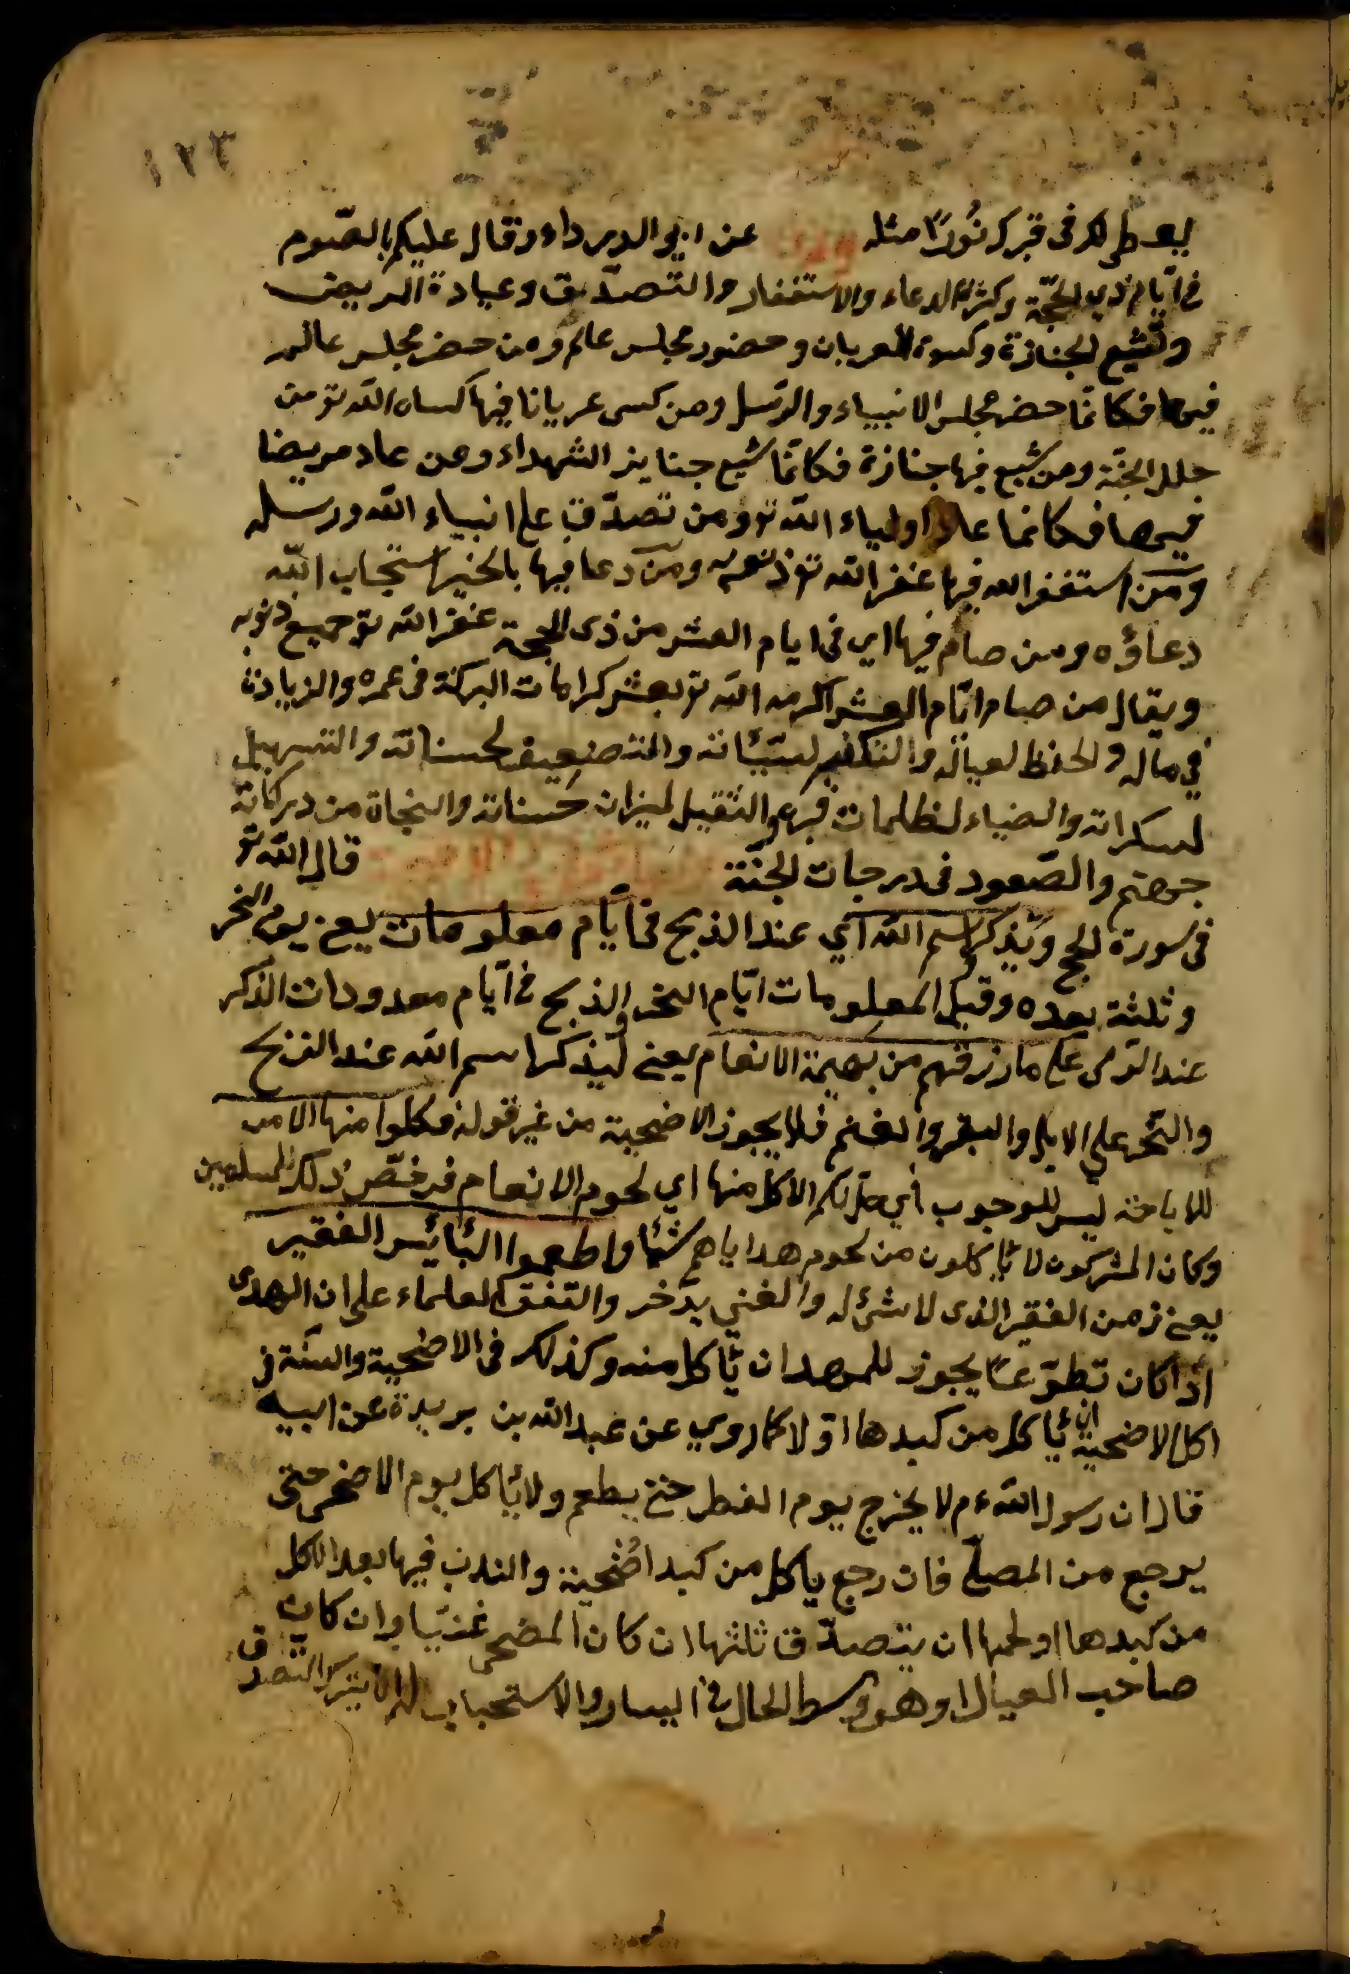 ١٢٣
يعطى لك فى قبرك نُورًا مثله عن ابى الدرداء وقال عليكم بالصّوم
فى ايّام ذى الحجّة وكثرة الدعاء والاستغفار والتّصدّيق وعيادة المريض
وتشيّع الجنازة وكسوة العريان وحضور مجلس عالم ومن حضر مجلس عالم
فيها فكانّما حضر مجلس الانبياء والرّسل ومن كسى عريانا فيها كساه الله تو من
حلل الجنّة ومن شيّع فيها جنازة فكانّما شيّع جنايز الشهداء ومن عاد مريضا
فيها فكانما عاد اولياء الله تو ومن تصدّق على انبياء الله ورسله
ومن استغفر الله فيها غفر الله تو ذنوبه ومن دعا فيها بالخير استجاب الله
دعاؤه ومن صام فيها اي فى ايام العشر من ذى الحجة غفر الله تو جميع ذنوبه
ويقال من صام ايّام العشر اكرمه الله تو بعشر كرامات البركة فى عمره والزيادة
فى ماله والحفظ لعياله والتكفير لسيّئاته والتضعيف لحسناته والتسهيل
لسكراته والضياء لظلمات قبره والتثقيل لميزان حسناته والنجاة من دركات
جهنم والصّعود فى درجات الجنّة قال الله تو
فى سورة الحج ويذكر اسم الله اي عند الذبح فى ايّام معلومات يعنى يوم النحر
وثلثة بعده وقيل المعلومات ايّام النحر والذبح فى ايّام معدودات الذّكر
عند الرّمى على ما رزقهم من بهيمة الانعام يعنى ليذكر اسم الله عند الذبح
والنّحر على الابل والبقر والغنم فلا يجوز الاضحية من غير قوله فكلوا منها الامر
للاباحة ليس للوجوب اي حل لكم الاكل منها اي لحوم الانعام فرخّص ذلك للمسلمين
وكان المشركون لا يأكلون من لحوم هداياهم شئا واطعموا البائس الفقير
يعنى زمن الفقير الذى لا شئ له والغني يدّخر واتفق العلماء على ان الهدى
اذا كان تطوّعًا يجوز للمهدى ان يأكل منه وكذلك فى الاضحية والسنّة فى
اكل الاضحية ان يأكل من كبدها اوّلا كما روي عن عبد الله بن بريدة عن ابيه
قال ان رسول الله ءم لا يخرج يوم الفطر حتى يطعم ولا يأكل يوم الاضحى حتى
يرجع من المصلّى فان رجع ياكل من كبد اضحيته والندب فيها بعد الاكل
من كبدها او لحمها ان يتصدّق ثلثها ان كان المضحى غنيّا وان كان
صاحب العيال او هو وسط الحال فى اليسار والاستحباب له ان يترك التصدق